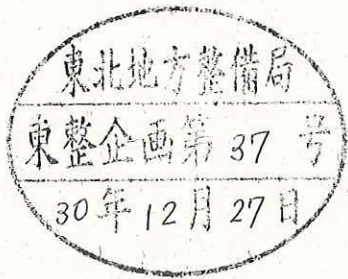 東北地方整備局
東整企画第37号
30年12月27日